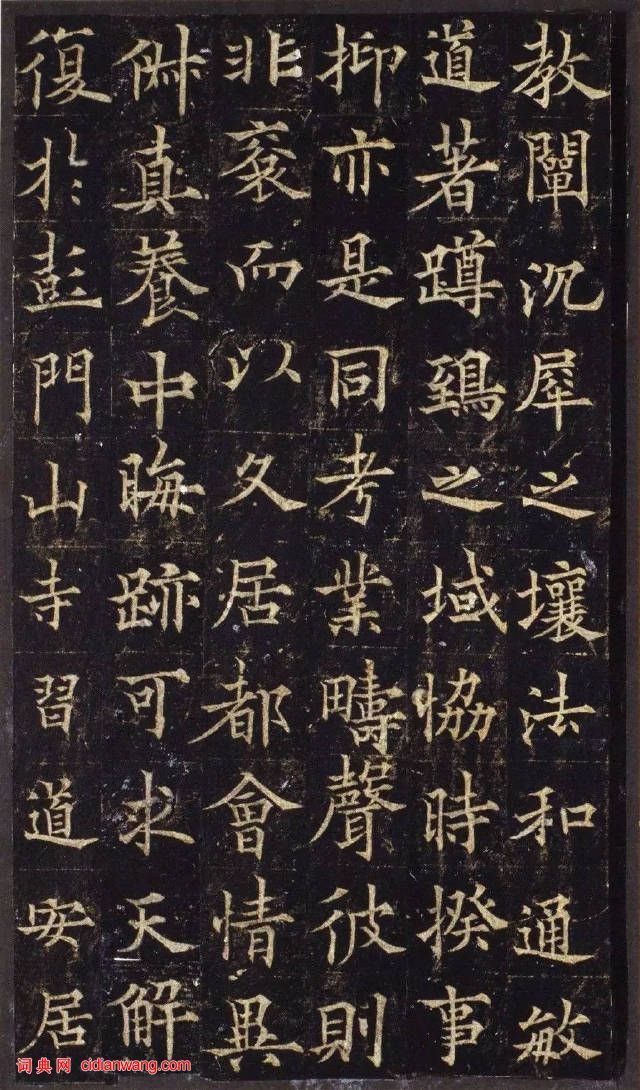 教闡沉犀之壤法和通敏
道著蹲鵄之域協時揆事
抑亦是同考業疇聲彼則
非袞而以久居都會情異
倂真養中晦跡可求天解
復於彭門山寺習道安居
词典网 cidianwang.com